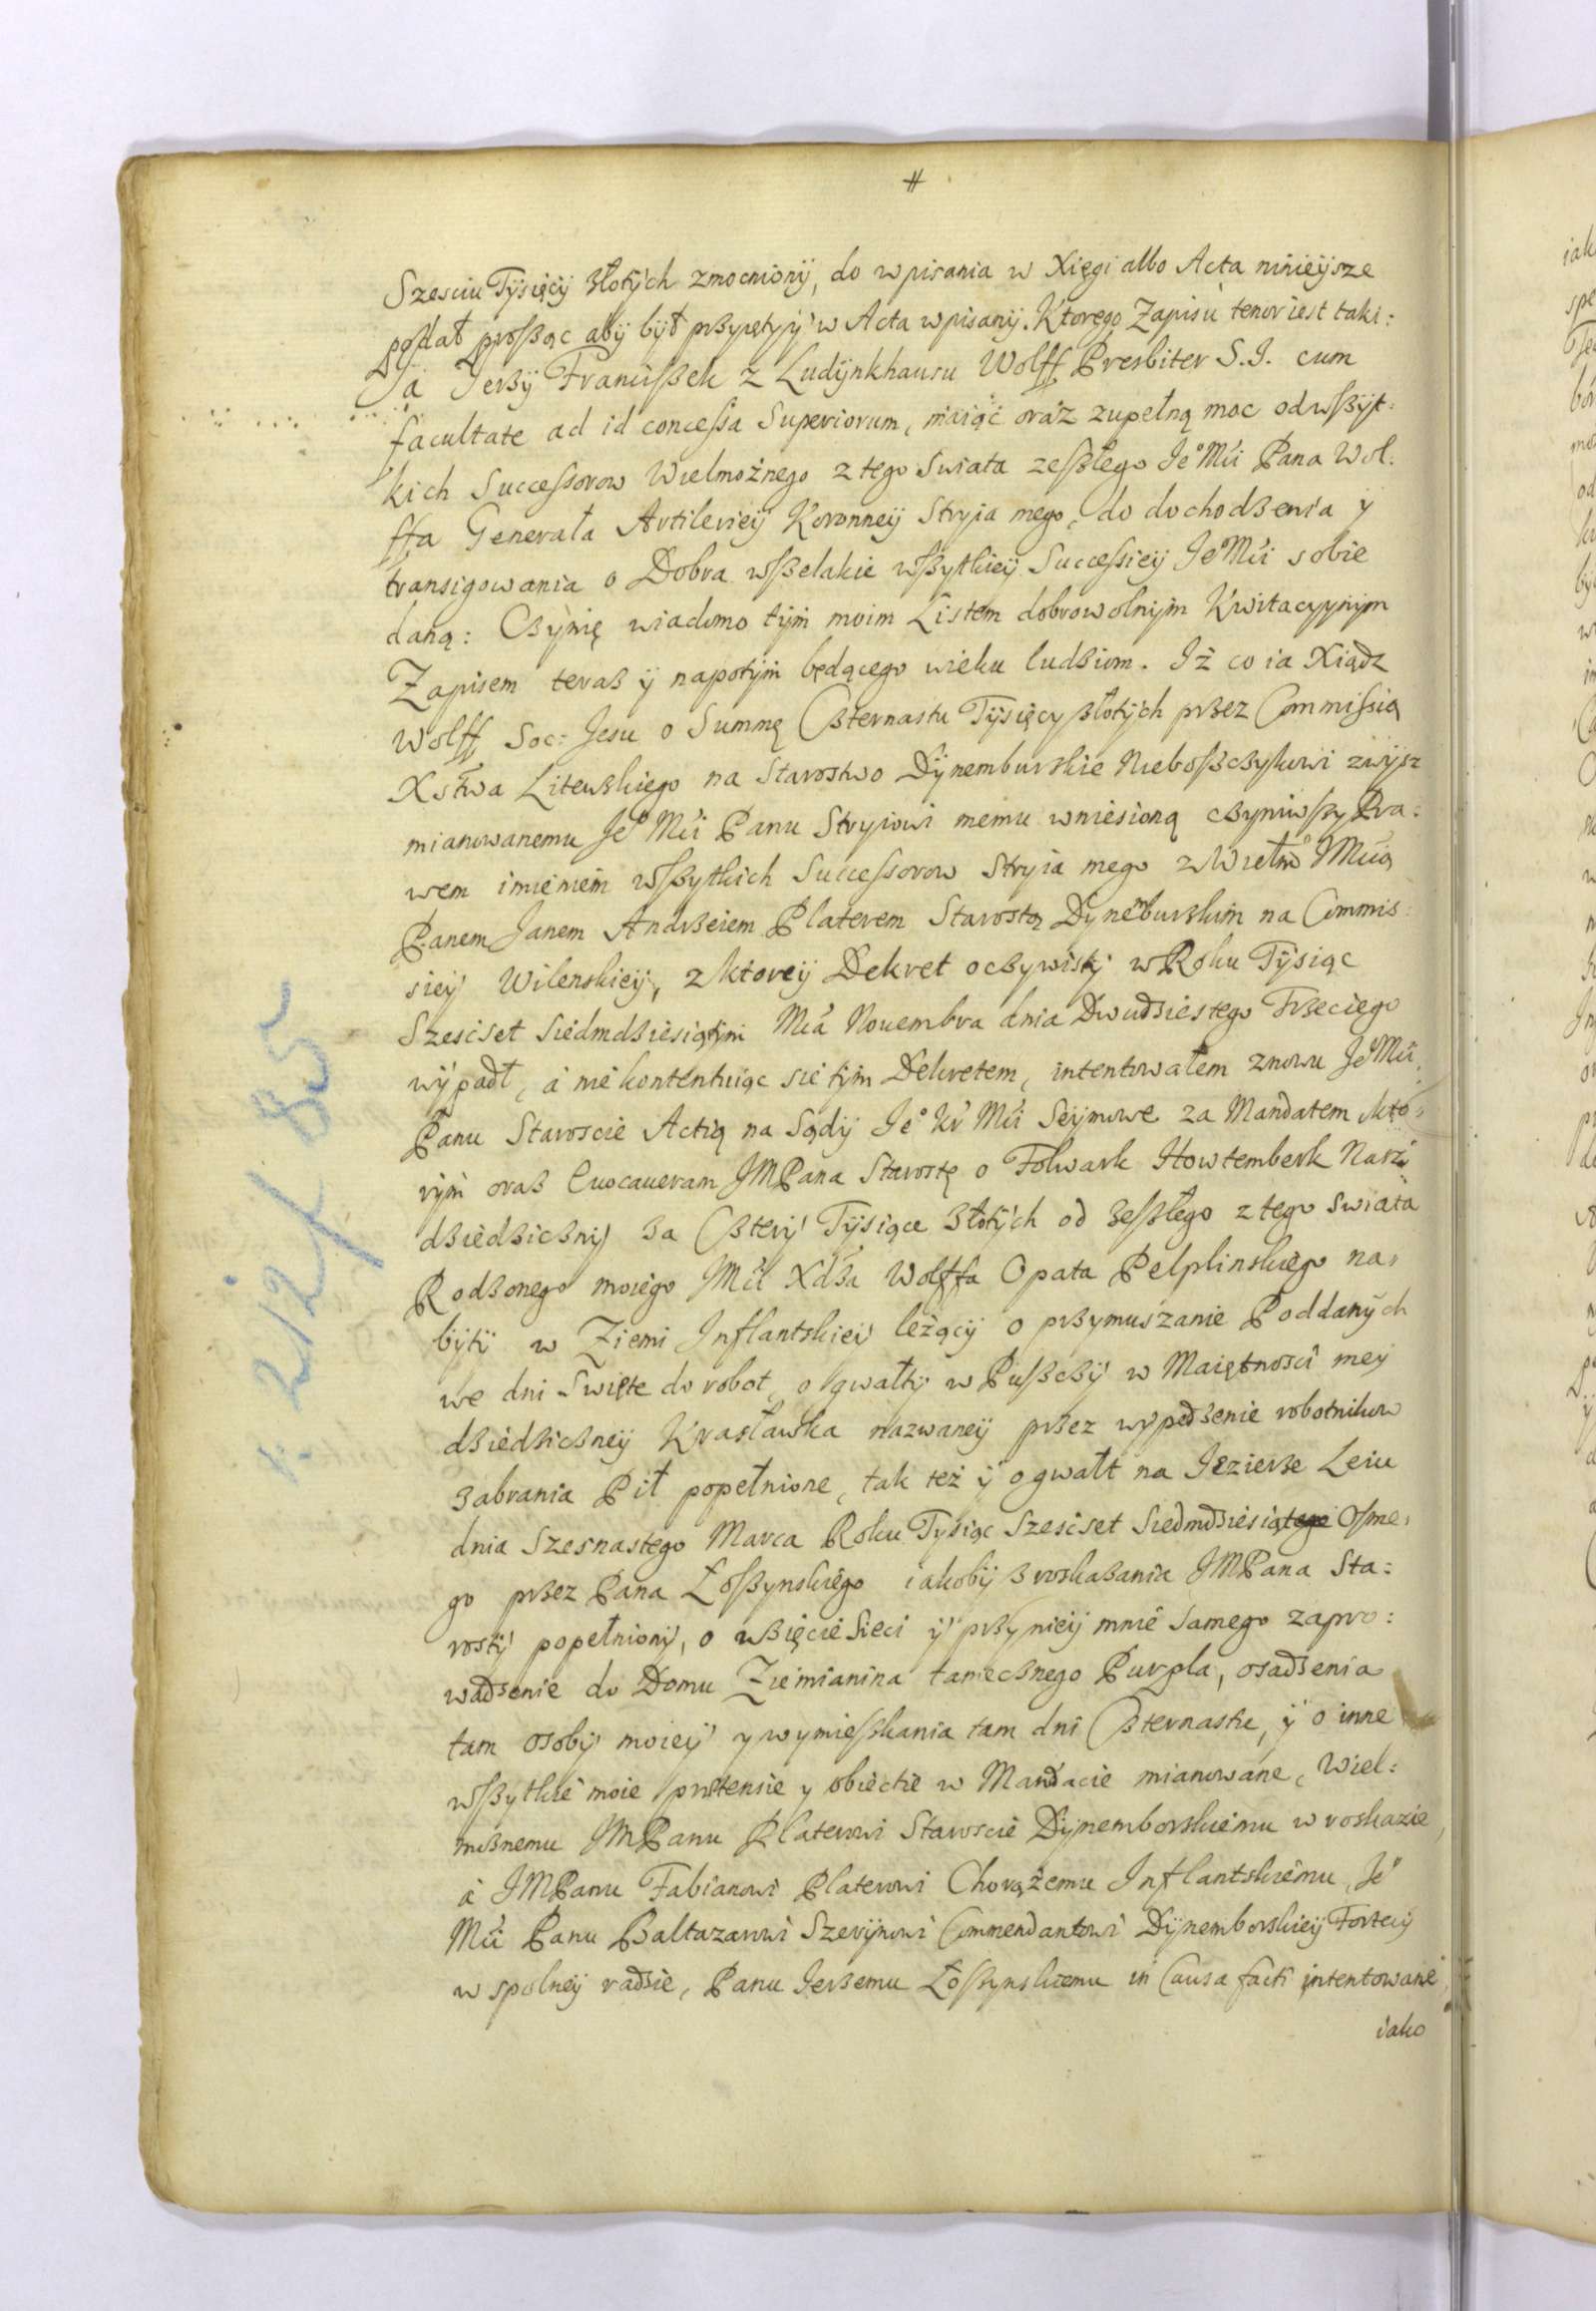 #
Szesciu Tysięcÿ złotÿch zmocnionÿ, do wpisania w Xięgi albo Acta ninieÿsze
podał proßąc abÿ bÿł przÿiętÿ ÿ w Acta wpisanÿ. Ktorego Zapisu tenor iest taki:
Ja Jerzÿ Franciszek z Ludÿnkhausu Wolff Presbiter S.J. cum
facultate ad id concessa Superiorum, maiąc oraz zupełną moc od wßÿt:
kich Successorow Wielmożnego z tego swiata zeßłego Je° Mći Pana Wol:
ffa Generała Artilerieÿ Koronneÿ Stryia mego, do dochodzenia y
transigowania o Dobra wßelakie wßytkieÿ Successieÿ Je Mći sobie
daną: Czÿnię wiadomo tÿm moim Listem dobrowolnÿm Kwitacyÿnÿm
Zapisem teraz ÿ napotÿm będącego wieku ludziom. Iż co ia Xiądz
Wolff Soc: Jesu o Summę Czternastu Tÿsięcy złotÿch przez Commissią
Xstwa Litewskiego na Starostwo Dÿnemburskie Nieboßczykowi zwÿsz
mianowanemu Je° Mći Panu Stryiowi memu wniesioną czyniwßy Pra:
wem imieniem wßytkich Successorow Stryia mego z Wielm° JMćią
Panem Janem Andrzeiem Platerem Starostą Dynemburskim na Commis:
sieÿ Wilenskieÿ, z ktoreÿ Dekret oczywistÿ w Roku Tÿsiąc
Szescset Siedmdziesiątÿm Mca Nouembra dnia Dwudziestego Trzeciego
wÿpadł, a nie kontentuiąc sie tÿm Dekretem, intentowałem znowu Je° Mći
Panu Staroscie Actią na Sądÿ Je° Kr Mći Seÿmowe za Mandatem kto:
rÿm oraz Euocaueram JMPana Starostę o Folwark Howtemberk Nasz
dziedzicznÿ za Czterÿ Tÿsiące złotÿch od zeßłego z tego swiata
Rodzonego moiego JMći Xdza Wolffa Opata Pelplinskiego na:
bÿtÿ w Ziemi Inflantskieÿ leżącÿ o przymuszanie Poddanÿch
we dni Swięte do robot, o gwałtÿ w Pußczÿ w Maiętnosci meÿ
dziedziczneÿ Krasławka nazwaneÿ przez wypędzenie robotnikow
zabrania Pił popełnione, tak też ÿ o gwałt na Iezierze Leiu
dnia Szesnastego Marca Roku Tysiąc Szescset Siedmdziesiątego Osme:
go przez Pana Łoßynskiego iakobÿ z roskazania JMPana Sta:
rostÿ popełnionÿ, o wzięcie Sieci ÿ przy nieÿ mnie samego zapro:
wadzenie do Domu Ziemianina tamecznego Purpla, osadzenia
tam osobÿ moieÿ y wymießkania tam dni Czternastu, ÿ o inne
wßytkie moie prætensie y obiectie w Mandacie mianowane, Wiel:
możnemu JMPanu Platerowi Staroscie Dÿnemborskiemu w roskazie,
a JMPanu Fabianowi Platerowi Chorążemu Inflantskiemu, Je°
Mći Panu Baltazarowi Szerÿnowi Commendantowi Dÿnemborskieÿ Fortecÿ
w spolneÿ radzie, Panu Jerzemu Łoßynskiemu in Causa facti intentowane
iako
r. 212/85